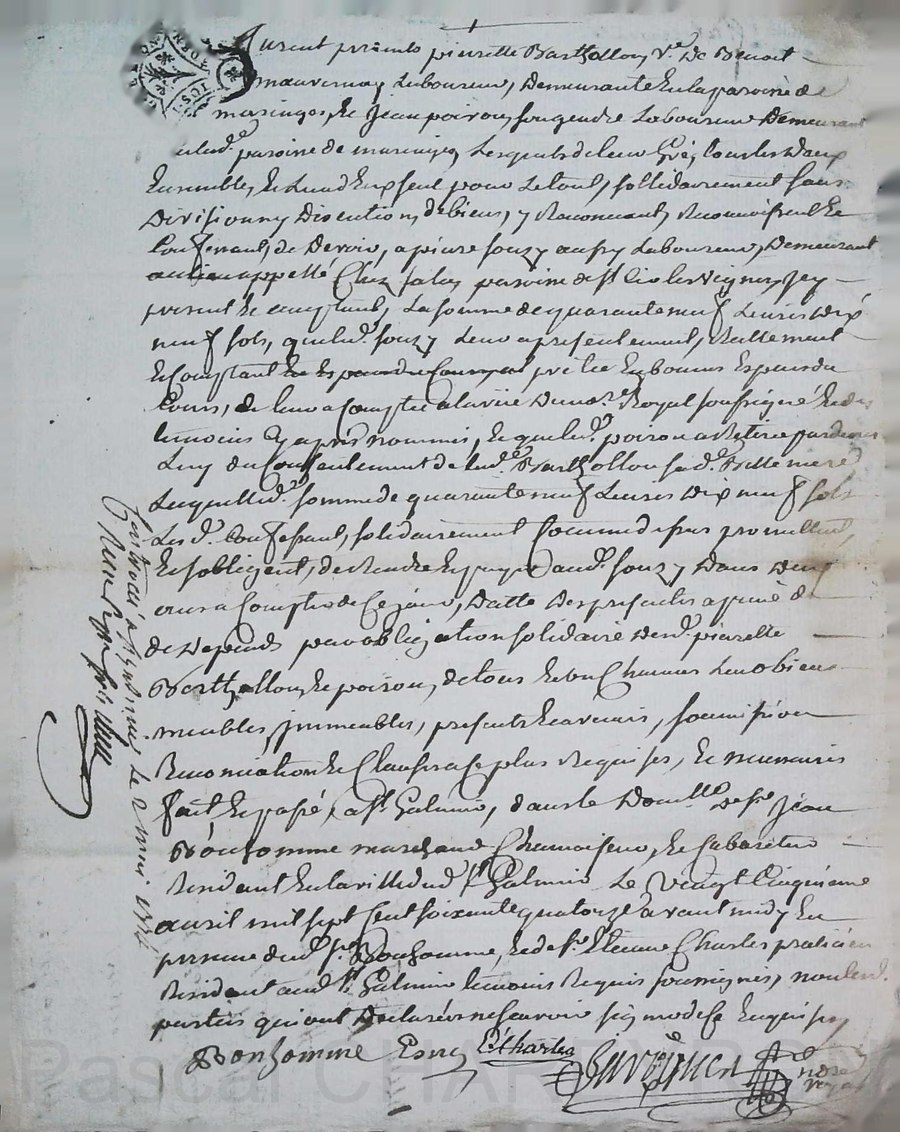 Furent présents pierrette Barthollon v.e de Benoit
mauvernay Laboureur, Demeurante En la paroisse de
maringes, Et Jean poiron, son gendre Laboureur Demeurant
aud. paroisse de maringes, Lesquels de leur Gré, tous les deux
Ensembles, Et L'un d'Eux seul pour Le tout, sollidairement sans
Division ny Discution, de biens, y Renoncant, Reconnoissent Et
Confessent, de Devoir, a pierre souzy aussy Laboureur, Demeurant
au lieu appellé Chez paroisse de st
present Et acceptant, La somme de quarante neuf Livres dix
neuf sols, que led. souzy Leur a presentement, Réellement
Et Comptant prêtée En bonnes Especes du
Cours, de luy Comptée a la vüe Du no.re Royal soussigné Et des
temoins Cy après nommés, Et que led. poiron a Retirée pardevers
Luy du Consentement de lad.e Barthollon sad.e Belle mere
Laquelle d. somme de quarante neuf Livres dix neuf sols
Les d. Confessants, solidairement Comme dessus promettent
Et s'obligent, de Rendre Et payer aud. souzy Dans deux
ans a Compter de Ce jour, Datte Des presentes a peine de
de Depends par obligation solidaire desd. pierrette
Barthollon, Et poiron, de tous Et un Chacuns Leurs biens
meubles, Immeubles, presents Et avenir, soumission
Renonciation Et Clauses a Ce plus Requises, Et necessaires
fait Et passé, a st. Galmier, dans le Domille. de sr. Jean
Bonhomme marchand Chamoiseur, Et Cabaretier
Resident En la ville dud. st. Galmier Le Vingt Cinquieme
avril mil sept Cent soixante quatorze avant midy En
presence dud. sr. Bonhomme, Et de sr. Etienne Charles praticien
Resident aud. st. Galmier temoins Requis soussignés, non Lesd.
parties qui ont Declarés ne scavoir signer de ce Enquises
Bonhomme E Charles
n.re
royal
a st Galmier Le 2 may 1774
Pascal CHAREYRON